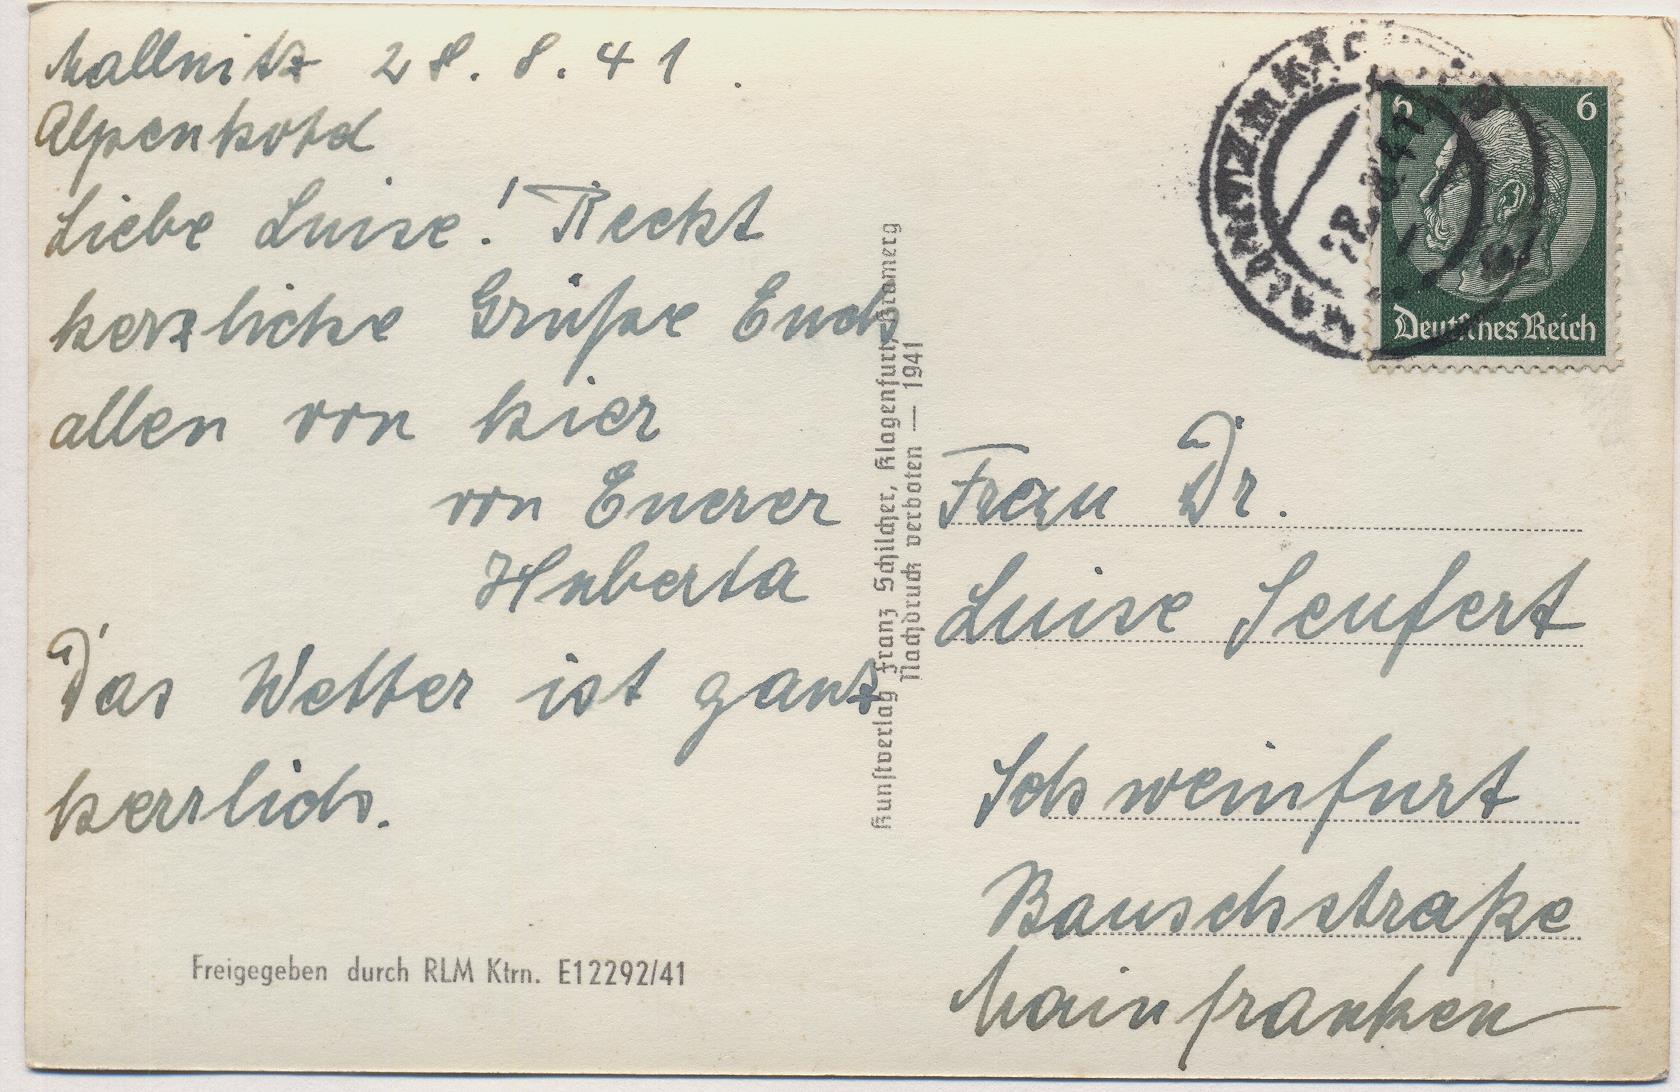 Mallnitz 28.8.41.
Alpenhotel
Liebe Luise! Recht
herzliche Grüße Euch
allen von hier
von Euerer
Huberta
Das Wetter ist ganz
herrlich.
Freigegeben durch RLM Ktrn. E12292/41
Kunstverlag Franz Schilcher, Klagenfurt,
Nachdruck verboten — 1941
6 6
Deutsches Reich
MALLNITZ
Frau Dr.
Luise Seufert
Schweinfurt
Bauschstraße
Mainfranken